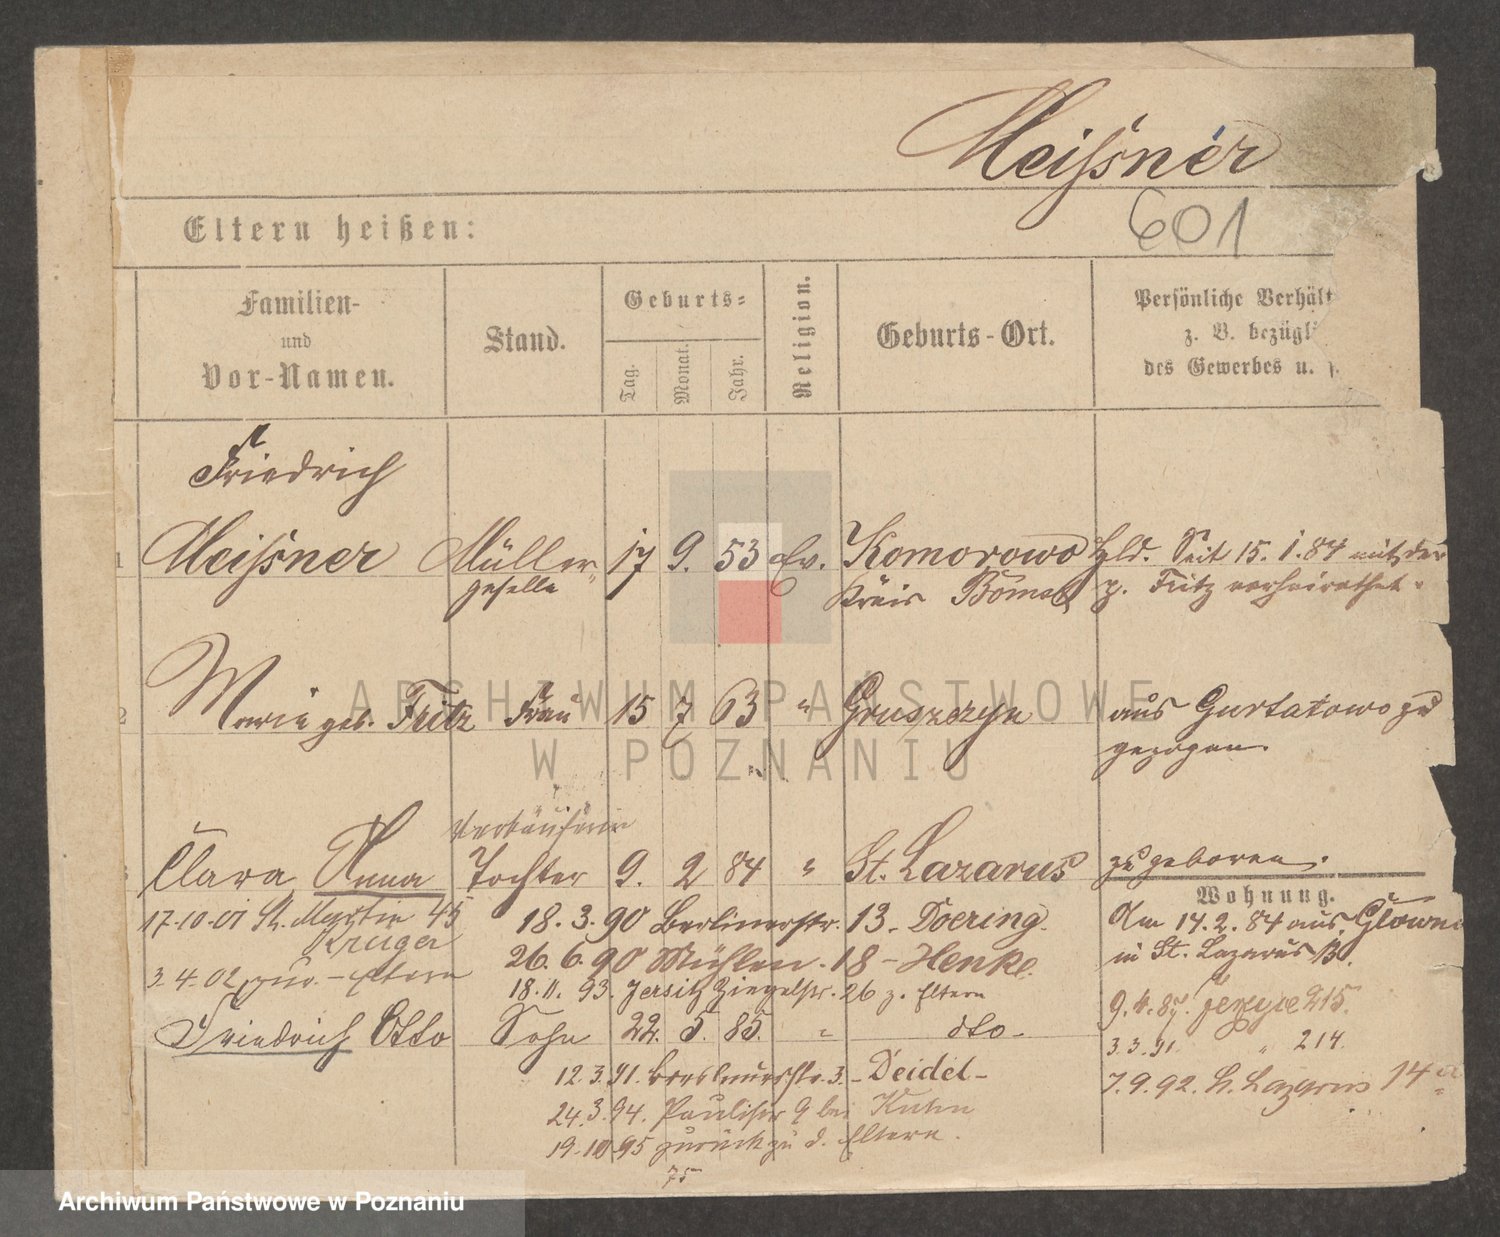 Meißner
601
Eltern heißen:
Familien- und Vor-Namen.
Stand.
Geburts-
Tag.
Monat.
Jahr.
Religion.
Geburts-Ort.
Persönliche Verhält
z. B. bezügl
des Gewerbes u. s.
Friedrich
1 Meißner Müller 17 9. 53 Ev. Komorowo Hld. Seit 15. 1. 84 mit der
geselle Kreis Bomst p. Fritz verheirathet.
2 Marie geb. Fritz Frau 15 7 63 " Gruszczyn aus Gurtatowo zu
gezogen.
Verkäuferin
Clara Anna Tochter 9. 2 84 " St. Lazarus zugeboren.
Wohnung.
17.10.01 St. Martin 45 18.3.90 Berlinerstr. 13. Doering. Am 14.2.84 aus Glowno
Krüger 26.6.90 Mühlen. 18 - Henke. in St. Lazarus
3.4.02 zur. Eltern 18.11.93. Jersitz Ziegelstr. 26 z. Eltern 9.4.87. 215.
Friedrich Otto Sohn 22. 5. 85. " dto. 3.3.91. " 214.
12.3.91. 3. - Deidel - 7.9.92. St. Lazarus 14
24.3.94. Paulistr 9 bei Kuhn
19.10.95 zurück zu d. Eltern.
75
ARCHIWUM PAŃSTWOWE
W POZNANIU
Archiwum Państwowe w Poznaniu